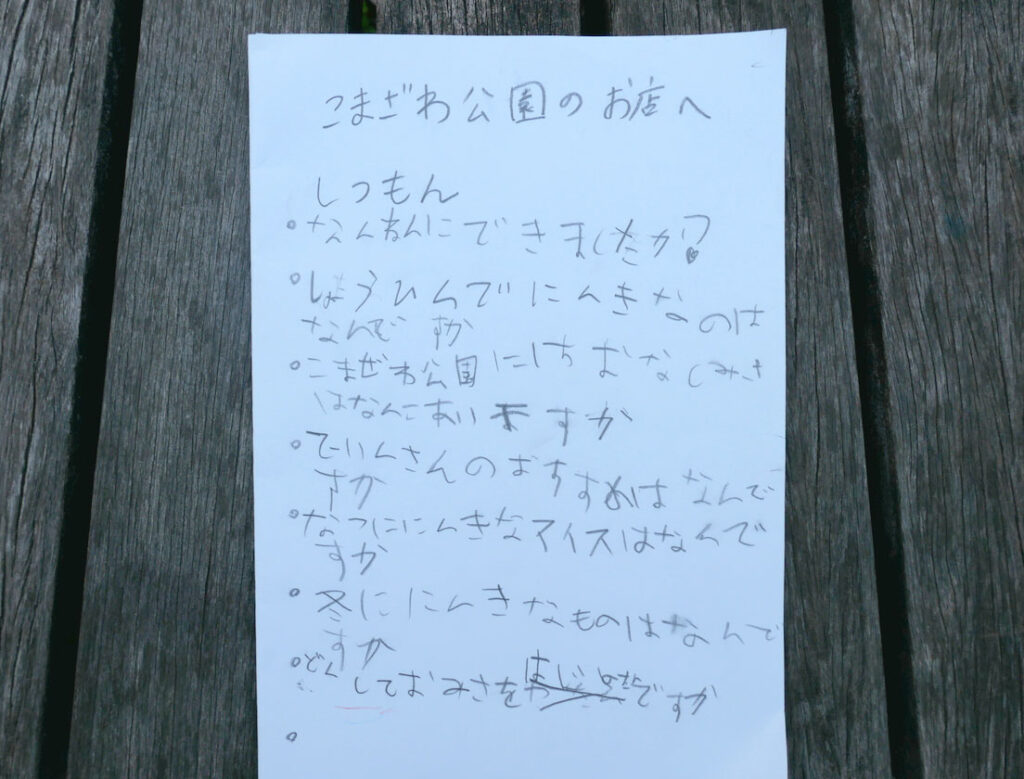 こまざわ公園のお店へ
しつもん
なんねんにできましたか?
しょうひんでにんきなのは
なんですか
こまざわ公園に にちおなじみさ
はなんこあいますか
てーいんさんのおすすめはなんで
すか
なつににんきなアイスはなんで
すか
冬ににんきなものはなんで
すか
どん
しておみさを ですか